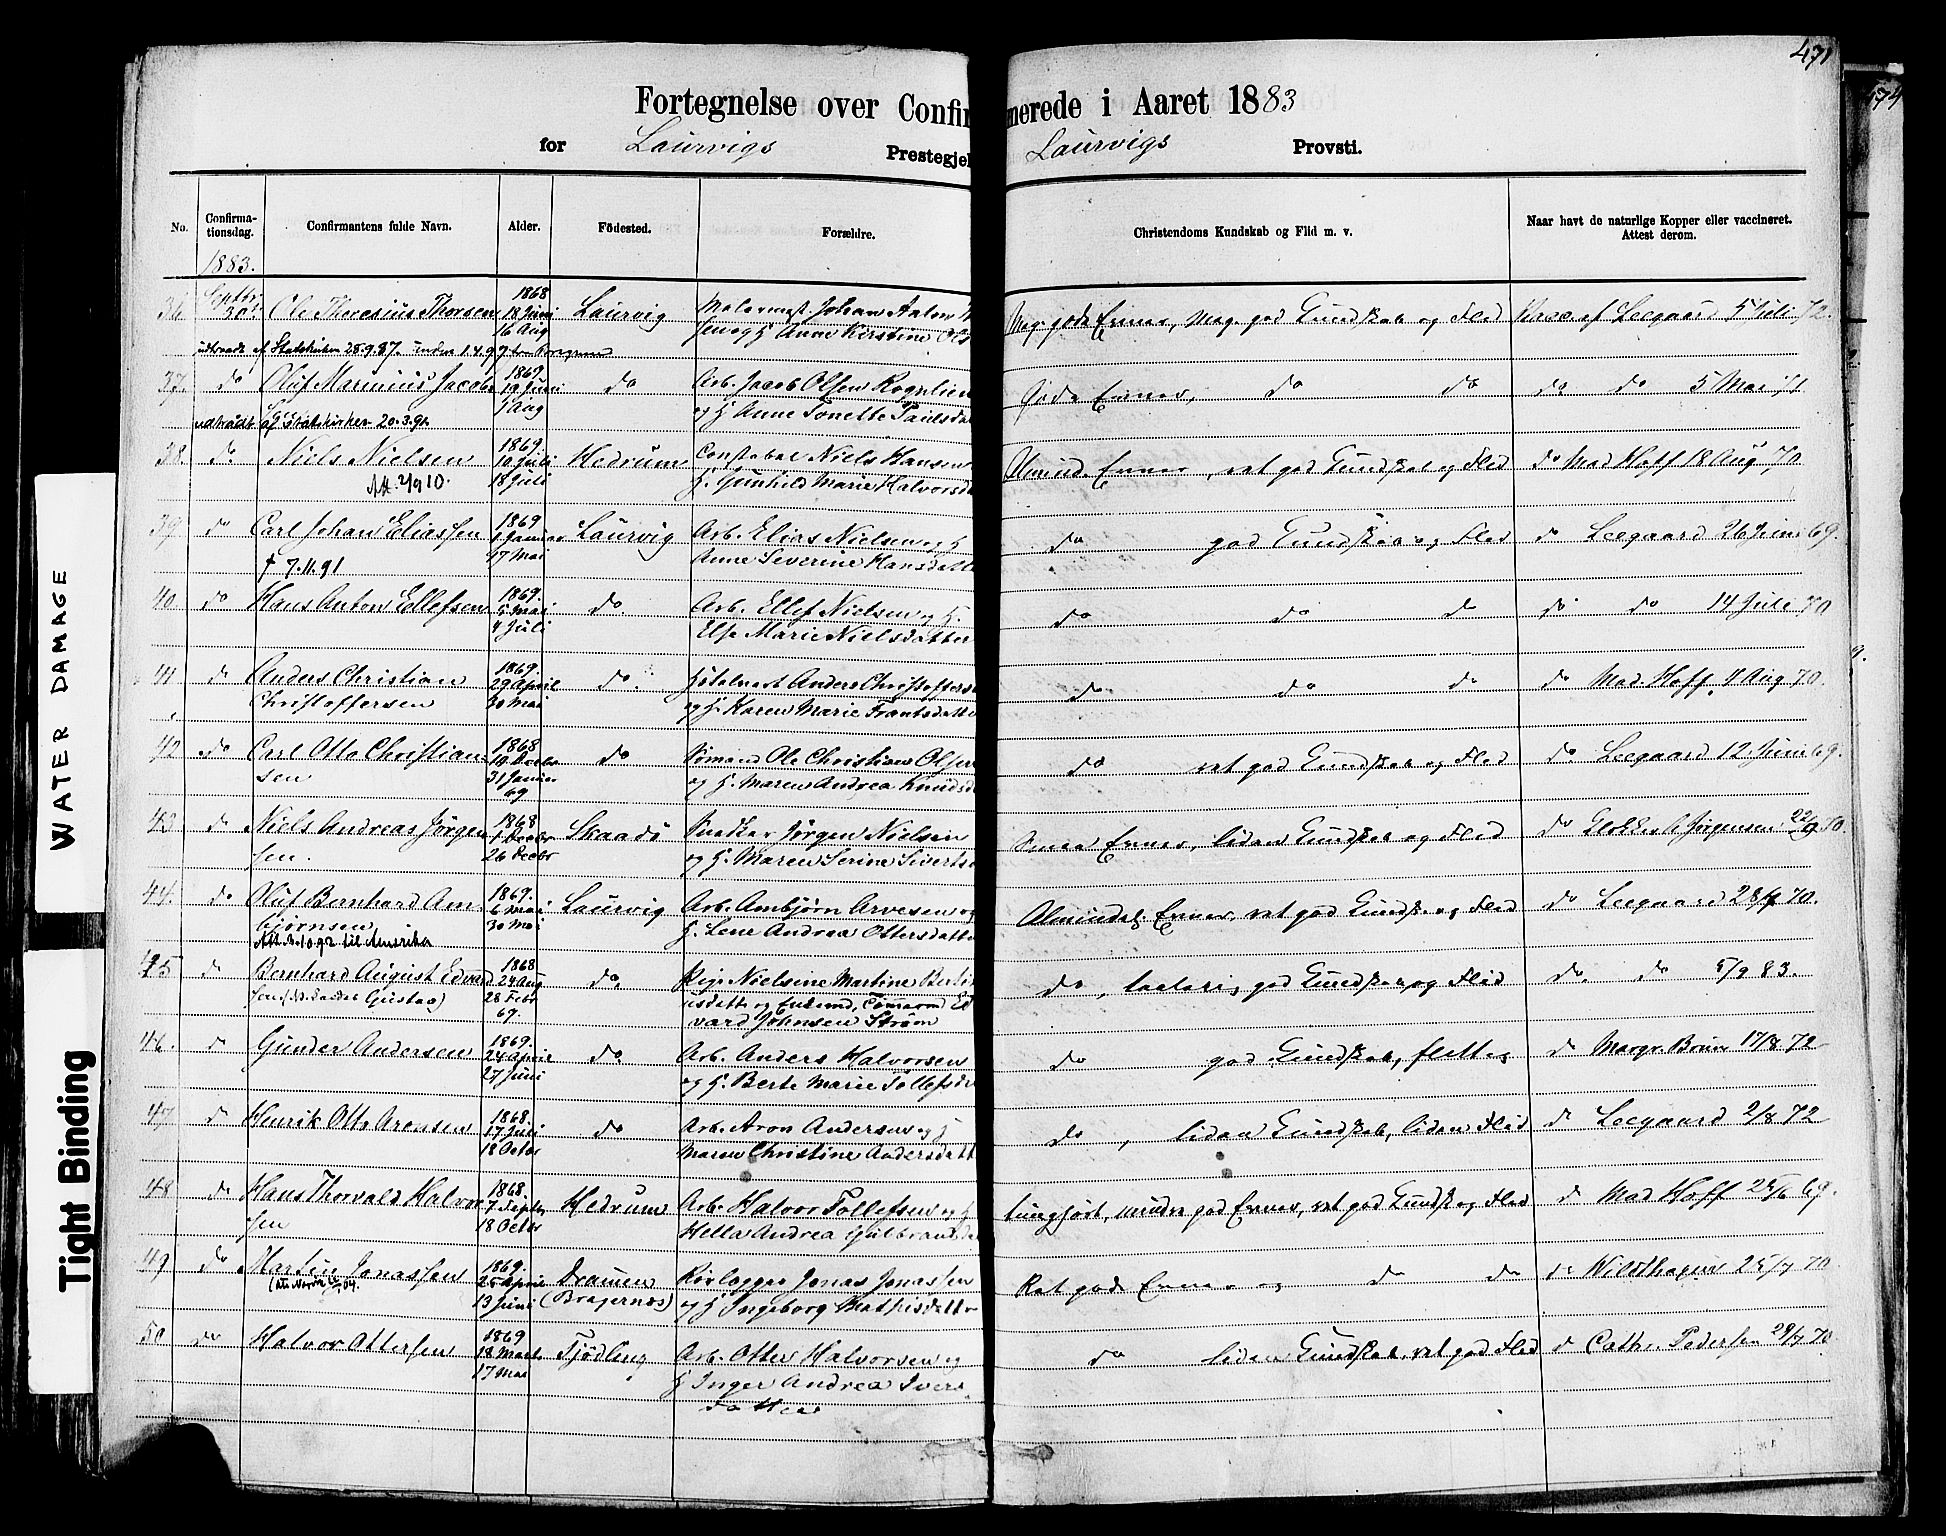 471
474
Fortegnelse over Confirmerede i Aaret 1883
for Laurvigs Prestegjel Laurvigs Provsti.
No. Confirma-tionsdag. Confirmantens fulde Navn. Alder. Födested. Forældre. Christendoms Kundskab og Flid m. v. Naar havt de naturlige Kopper eller vaccineret. Attest derom.
1883.
36. Septbr 30 Ole Theresius Thorsen 1868 18 Juni 16 Aug Laurvig Malermst. Johan Anton
sen og H. Anne Kirstine Ols
Meg. gode Evner, Meg. god Kundskab og Flid Vacc. af Leegaard 5 Juli 72.
udtraadt af Statskirken 28.9.87.
37. do Oluf Marinius Jacobs 1869. 19 Juni 1 Aug do Arb. Jacob Olsen Rognlien
og H. Anne Tonette Paulsdat
Gode Evner, do do do do 5 Mai 71
udtraadt af Statskirken 20.3.91.
38. do Niels Nielsen 1869. 10 Juli 18 Juli Hedrum Constabel Niels Hansen
H. Gunhild Marie Halvorsda
Almind. Evner, ret god Kundskab og Flid do Mad Hoff 18 Aug 70
Att. 2/9 10.
39. do Carl Johan Eliassen 1869 1 Januar 17 Mai Laurvig Arb. Elias Nielsen og H
Anne Severine Hansdatte
do god Kundskab og Flid do Leegaard 26 Juni 69.
† 7.11.91
40. do Hans Anton Ellefsen 1869. 5 Mai 4 Juli do Arb. Ellef Nielsen og H.
Else Marie Nielsdatter
do do do do do 14 Juli 70
41 do Anders Christian 1869. 29 April 30 Mai do. Anders Christoffers
Christoffersen og H. Karen Marie Frantsdatte
do do do do Mad. Hoff 4 Aug 70.
42 do Carl Otto Christian 1868 10 Decbr 31 Januar 69 do Sömand Ole Christian Olsen
sen og H. Maren Andrea Knudsd
do ret god Kundskab og Flid do Leegaard 12 Juni 69.
43 do Niels Andreas Jörgen 1868 1 Decbr 26 Decbr Skaadö Snedker Jörgen Nielsen
sen. og H. Maren Serine Sivertsd
Smaa Evner, liden Kundskab og Flid do Jörgensen 22/9 50.
44. do Oluf Bernhard Am 1869. 6 Mai 30 Mai Laurvig Arb. Ambjörn Arvesen og
bjørnsen H. Lene Andrea Ottersdatte
Almindelg Evner, ret god Kundsk. og Flid do Leegaard 28/7 70.
Att. 3.10.92 til Amerika
45 do Bernhard August Edvard 1868 24 Aug 28 Febr 69. do. Pige Nielsine Martine Bertin
sen Gustav) usdatt og Enkemd, Tömmermd Ed
vard Johnsen Ström
do, god Kundskab og Flid do. do 5/9 83.
46. do Gunder Andersen 1869. 24 April 27 Juni do Arb. Anders Halvorsen
og H. Berte Marie Tollefsda
do god Kundskab, flittig do Margr. Brun 17/8 72
47 do Henrik Otto Aronsen 1868. 17 Juli 18 Octbr do Arb. Aron Andersen og H
Maren Christine Andersdatt
do, liden Kundskab, liden Flid do Leegaard 2/8 72
48 do Hans Thorvald Halvor 1868. 7 Septbr 18 Octbr Hedrum Arb. Halvor Tollefsen og H
sen Hella Andrea Gulbrandsda
tunghört, mindre god Evner, ret god Kundsk og Flid do Mad Hoff 25/6 69.
49 do Martin Jonassen 1869. 25 April 13 Juni Dramen Rörlægger Jonas Jonassen
(Bragernæs) og H Ingeborg Mathisdatte
Ret gode Evner og do do do Wildhagen 25/7 70
50 do Halvor Ottersen 1869 18 Marts 17 Mai Tjödling Arb. Otter Halvorsen og
H Inger Andrea Ivers
datter
do liden Kundskab, ret god Flid do Cathr. Pedersen 29/7 70.
WATER DAMAGE
Tight Binding